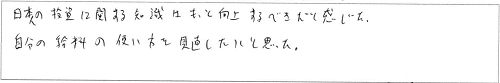 日頃の投資に関する知識はもっと向上するべきだと感じた。
自分の給料の使い方を見直したいと思った。